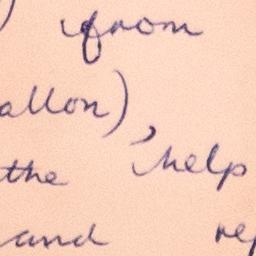 ) from
allon),
the 'help
and rep